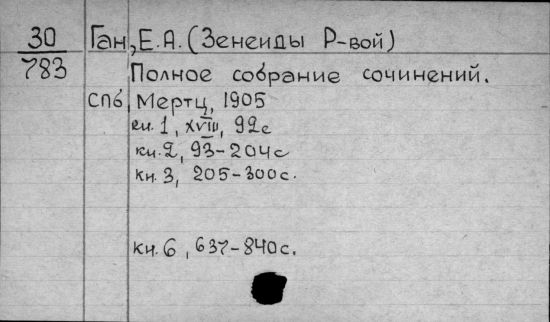 30 Ган, Е.А. (Зенеиды Р-вой)
783 Полное собрание сочинений.
Спб, Мертц, 1905
кн. 1, XVIII, 92с
кн. 2, 93-204с
кн. 3, 205-300с.
кн. 6, 637-840с.